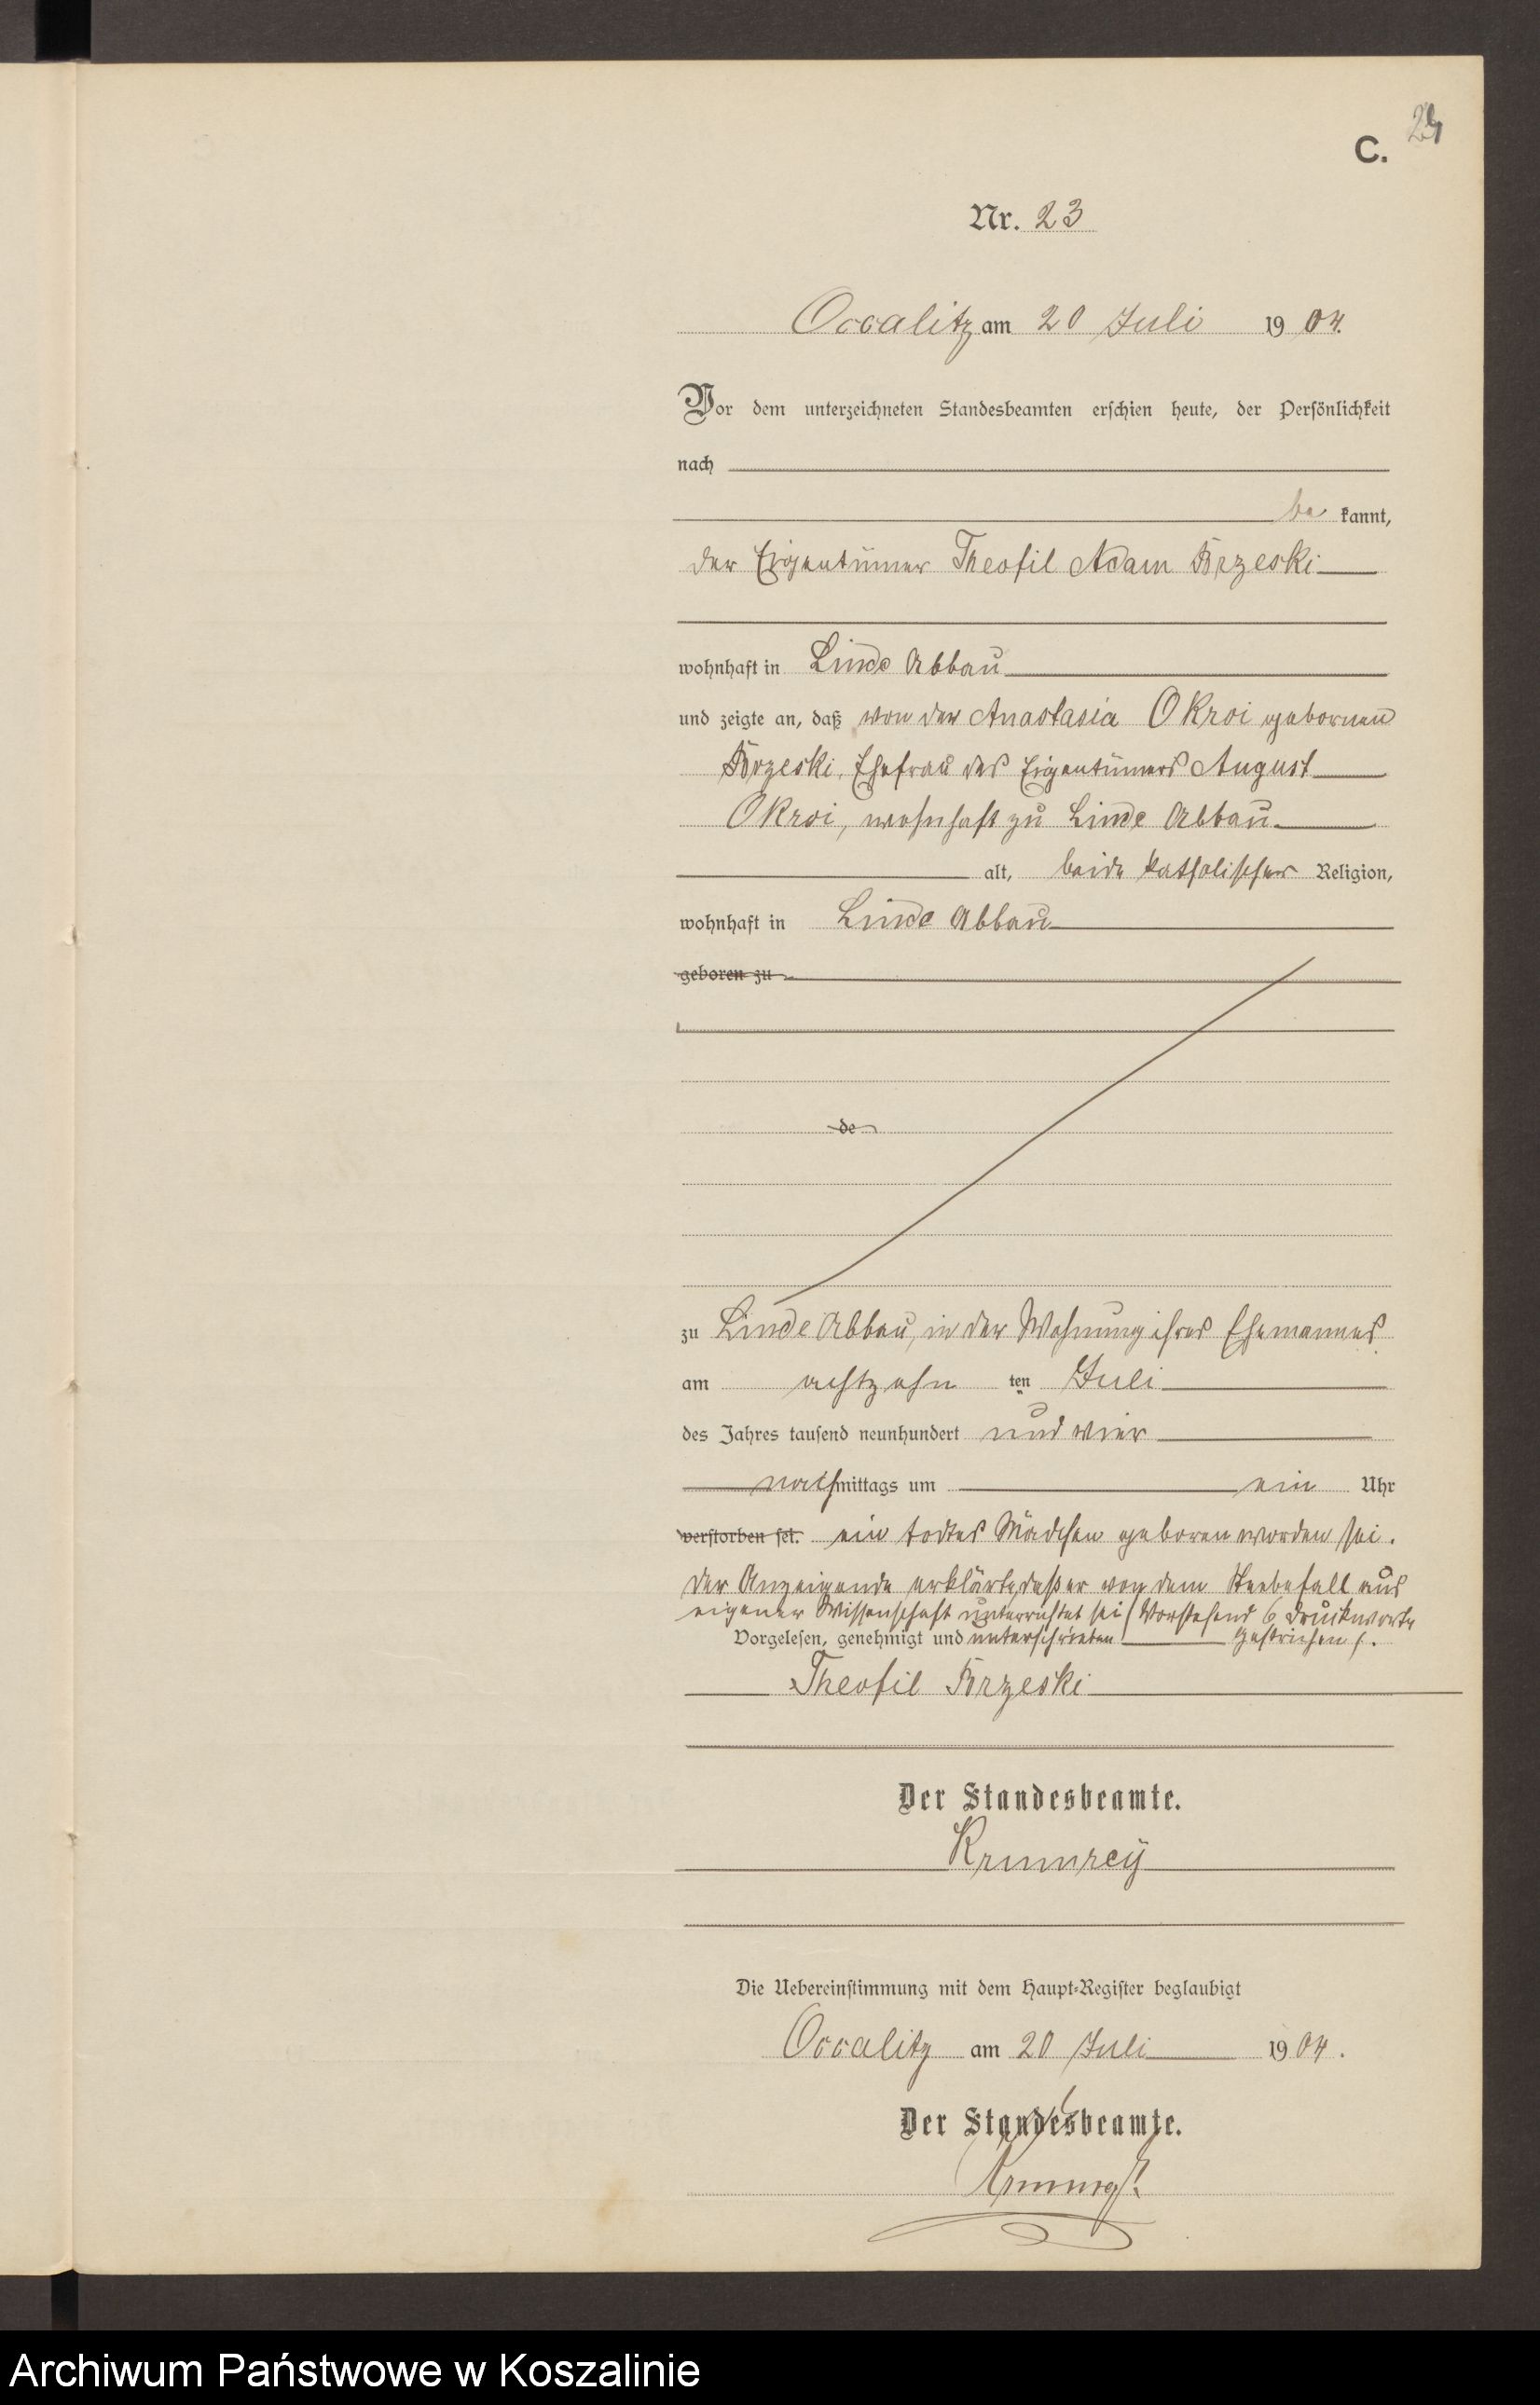 C.
Nr. 23
Occalitz am 20 Juli 1904.
Vor dem unterzeichneten Standesbeamten erschien heute, der Persönlichkeit
nach
be kannt,
der Eigentümer Theofil Adam Brzeski
wohnhaft in Linde Abbau
und zeigte an, daß von der Anastasia Okroi gebornen
Brzeski, Ehefrau des Eigentümers August
Okroi, wohnhaft zu Linde Abbau
alt, beide katholischer Religion,
wohnhaft in Linde Abbau
geboren zu
de
zu Linde Abbau, in der Wohnung ihres Ehemannes
am achtzehn ten Juli
des Jahres tausend neunhundert und vier
nachmittags um ein Uhr
verstorben sei. ein todtes Mädchen geboren worden sei.
Der Anzeigende erklärte, daß er von dem Sterbefall aus
eigener Wissenschaft unterrichtet sei (Vorstehend 6 Druckworte
Vorgelesen, genehmigt und unterschrieben gestrichen).
Theofil Brzeski
Der Standesbeamte.
Krumrey
Die Uebereinstimmung mit dem Haupt-Register beglaubigt
Occalitz am 20 Juli 1904.
Der Standesbeamte.
Krumrey
Archiwum Państwowe w Koszalinie